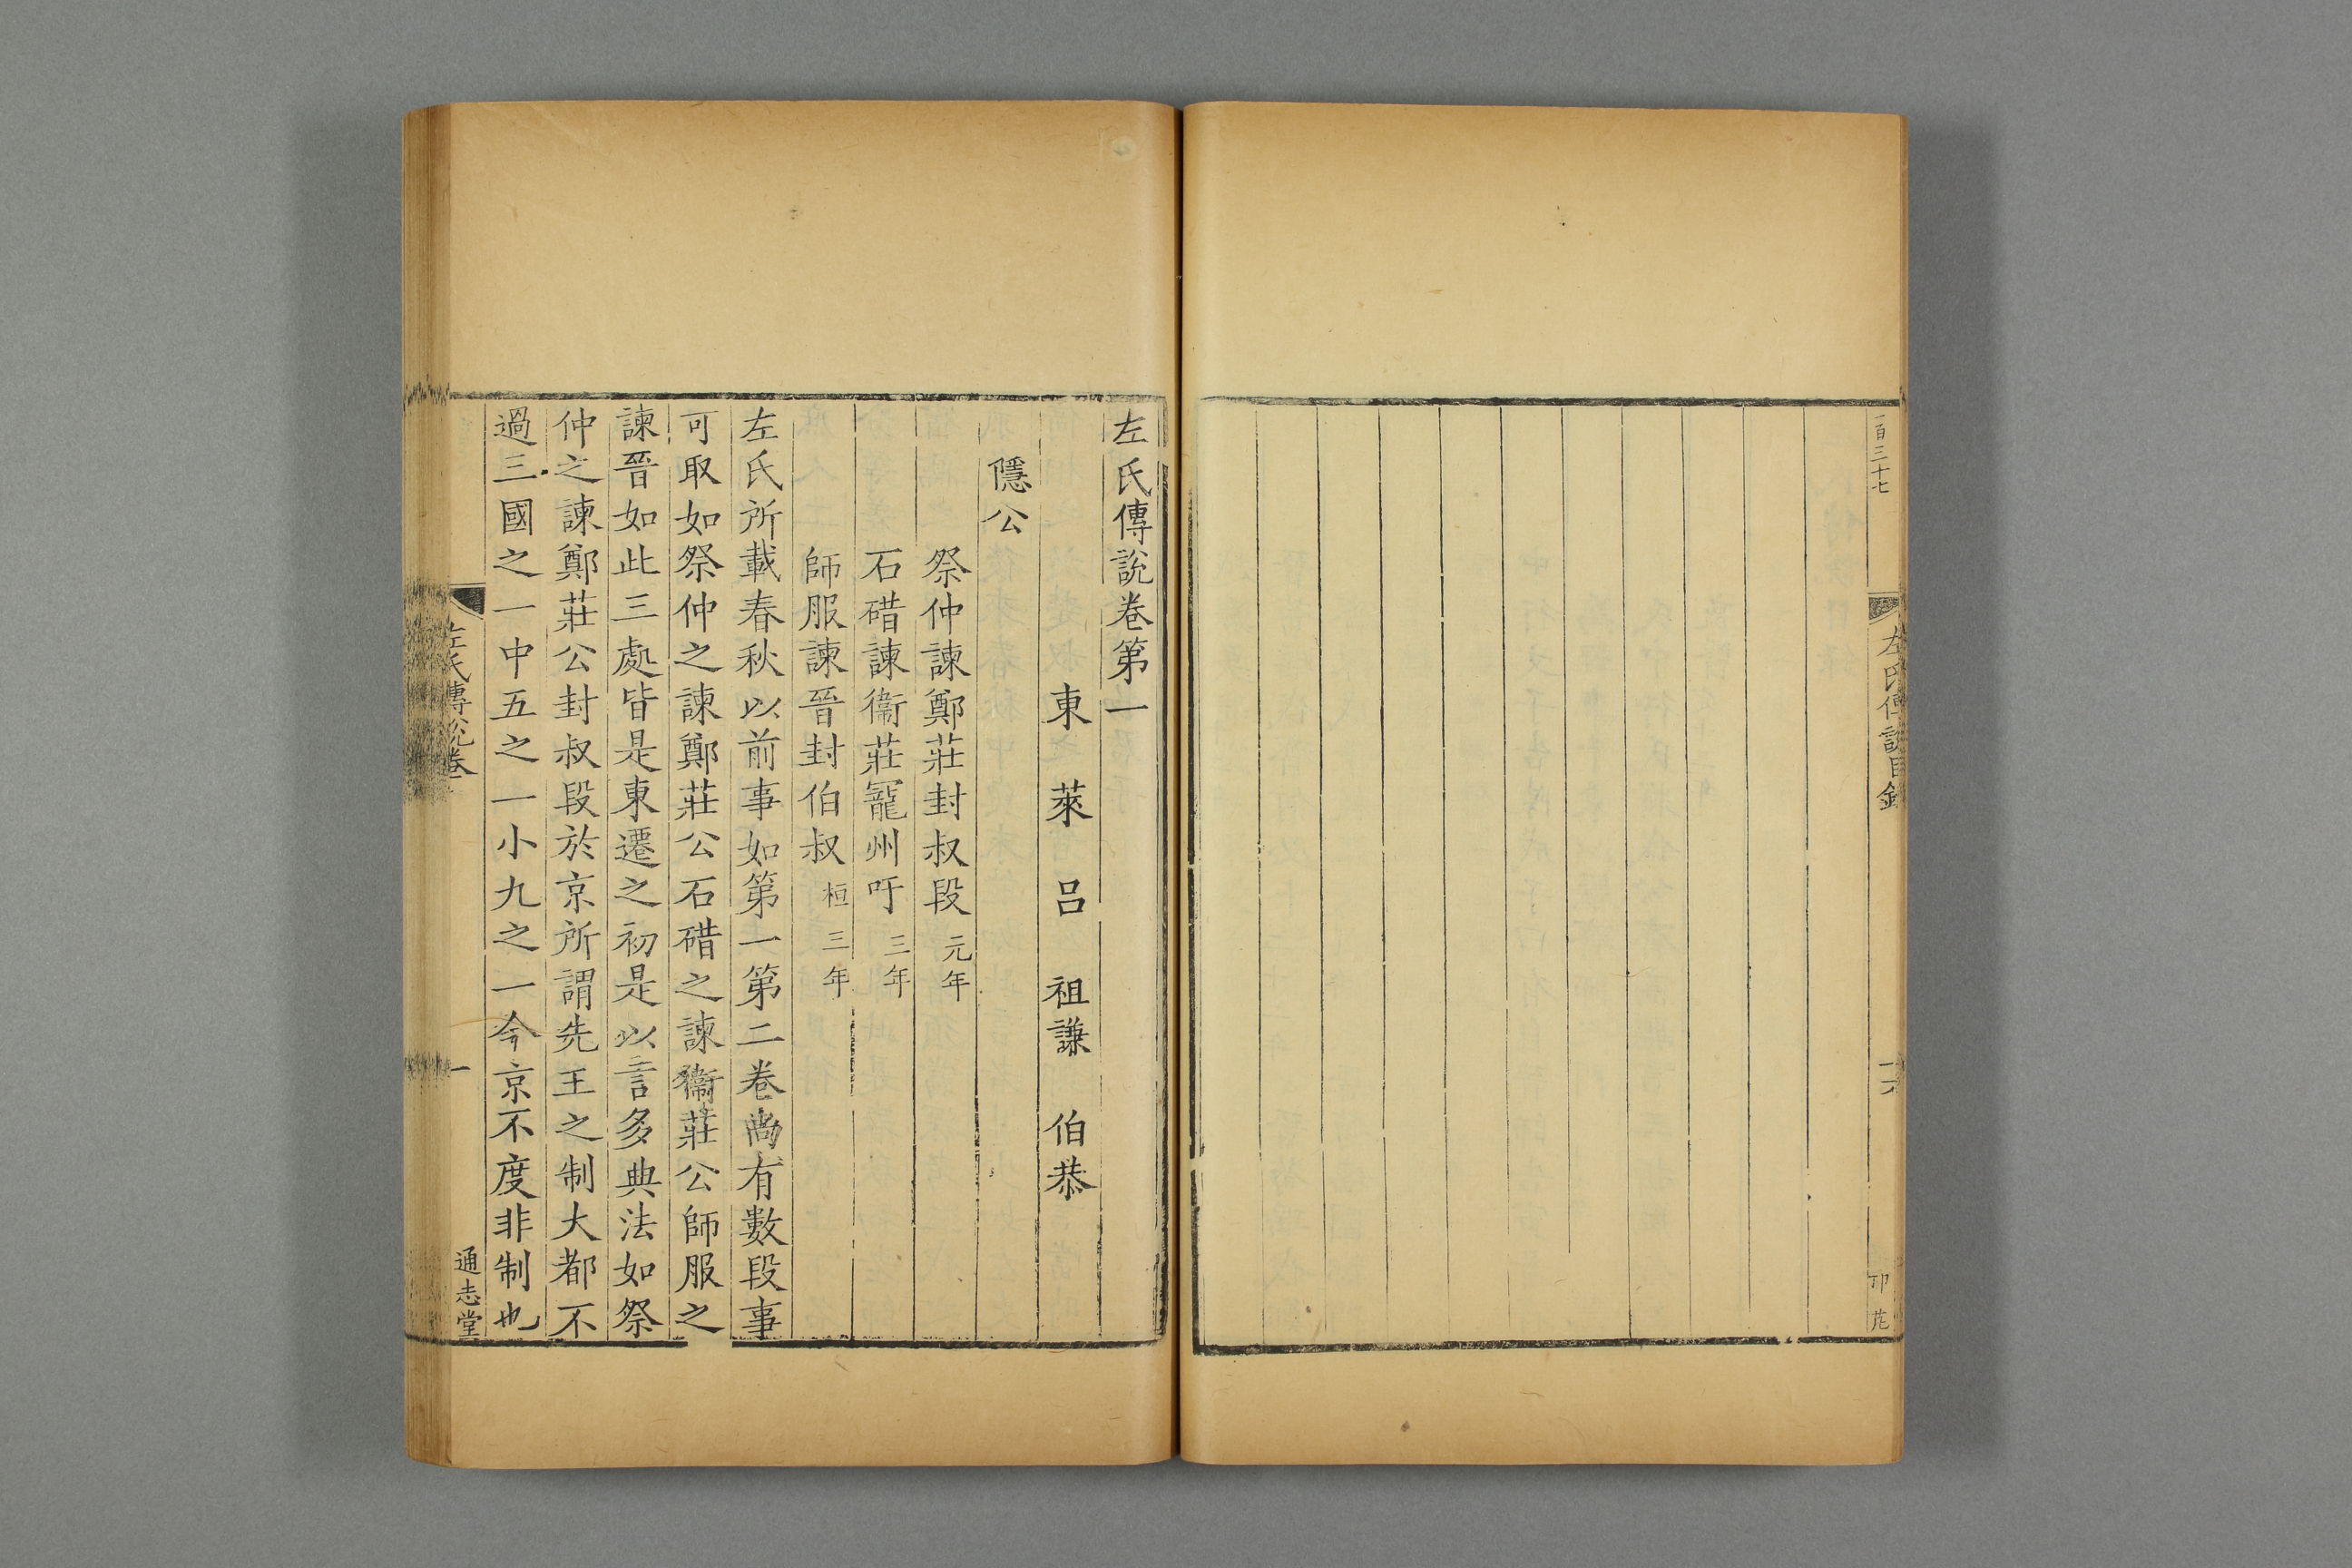 一百三十七
左氏傳說目錄
左氏傳說卷第一
東萊呂 祖謙 伯恭
隱公
祭仲諫鄭莊封叔段 元年
石碏諫衞莊寵州吁 三年
師服諫晉封伯叔 桓三年
左氏所載春秋以前事如第一第二卷尚有數段事
可取如祭仲之諫鄭莊公石碏之諫衞莊公師服之
諫晉如此三處皆是東遷之初是以言多典法如祭
仲之諫鄭莊公封叔段於京所謂先王之制大都不
過三國之一中五之一小九之一今京不度非制也
左氏傳說卷一
一
通志堂